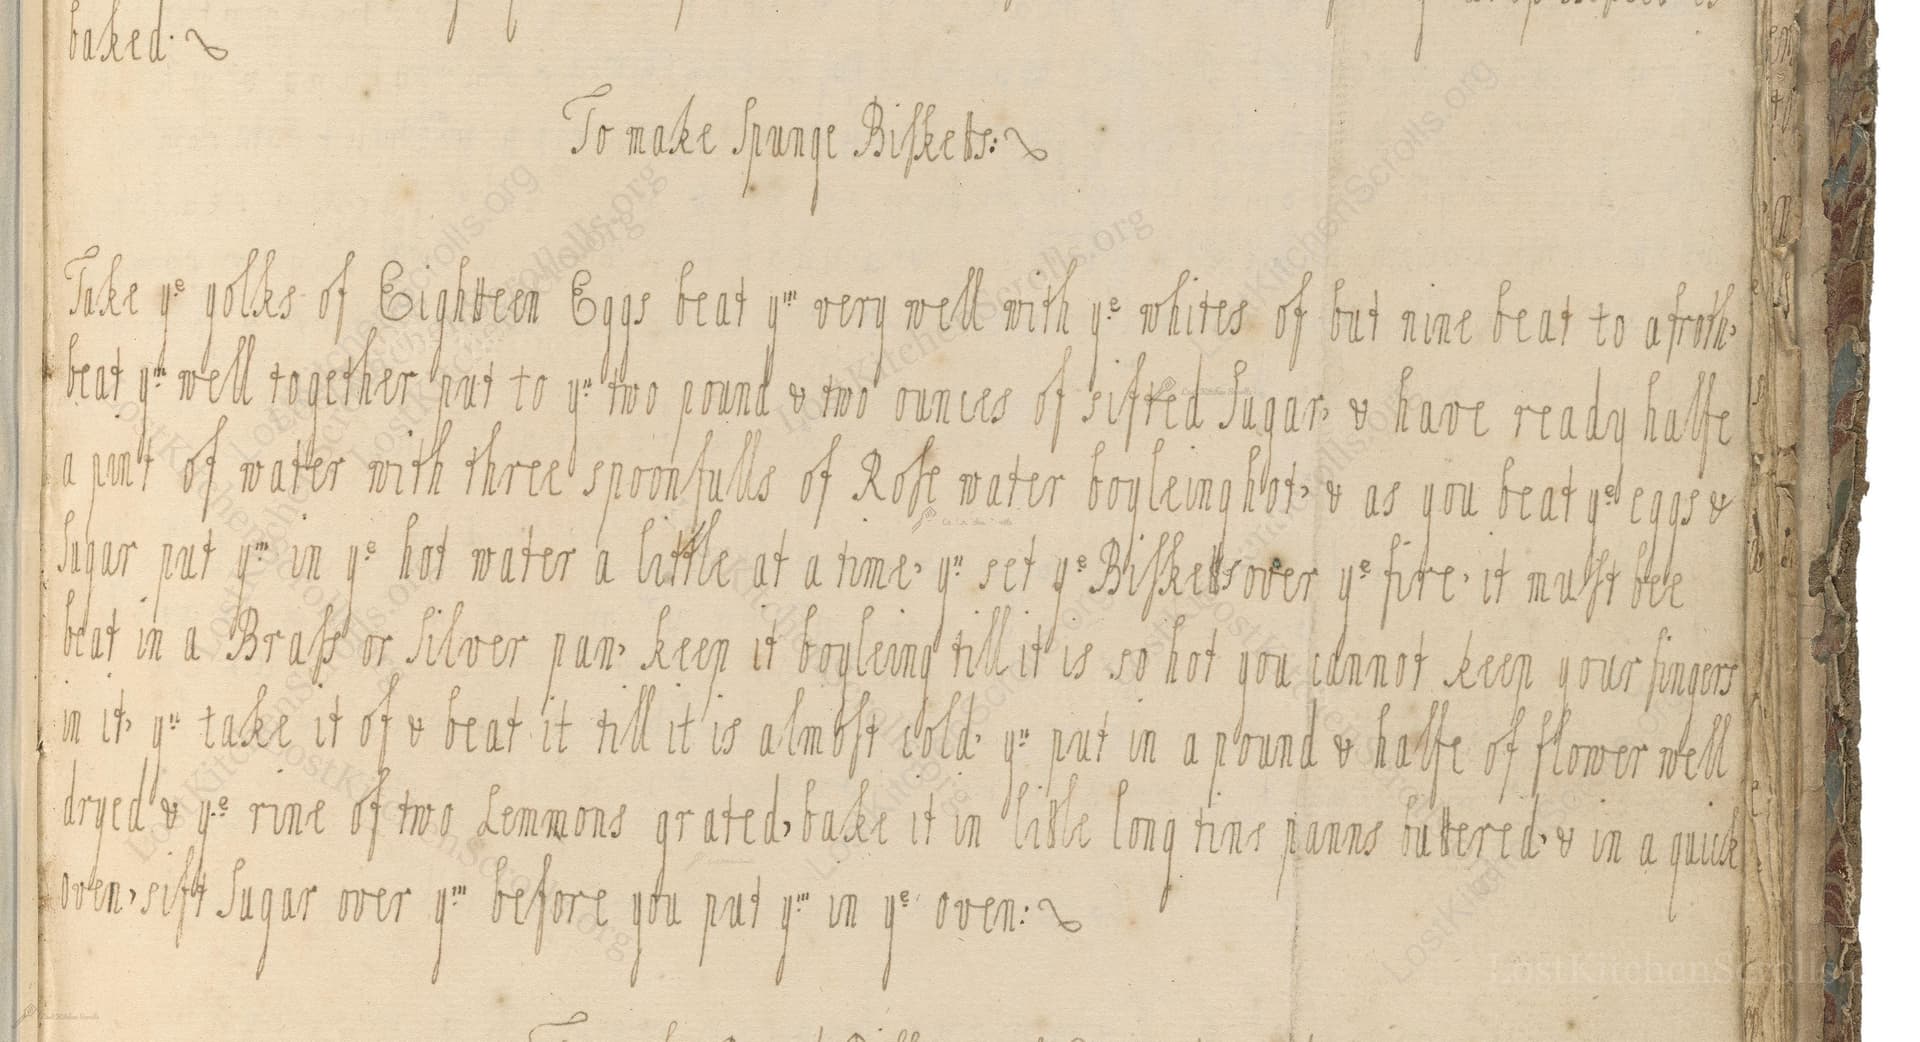 baked.
To make Spunge Biskets:
Take ye yolks of Eighteen Eggs beat ym very well with ye whites of but nine beat to a froth,
beat ym well together put to yn two pound & two ounces of sifted Sugar, & have ready halfe
a pint of water with three spoonfulls of Rose water boyleing hot, & as you beat ye eggs &
Sugar put ym in ye hot water a little at a time, yn set ye Biskets over ye fire, it must bee
beat in a Brass or Silver pan, keep it boyleing till it is so hot you cannot keep your fingers
in it, yn take it of & beat it till it is almost cold, yn put in a pound & halfe of flower well
dryed & ye rine of two Lemmons grated, bake it in little long tins panns buttered, & in a quick
oven, sift Sugar over ym before you put ym in ye oven:
LostKitchenScrolls